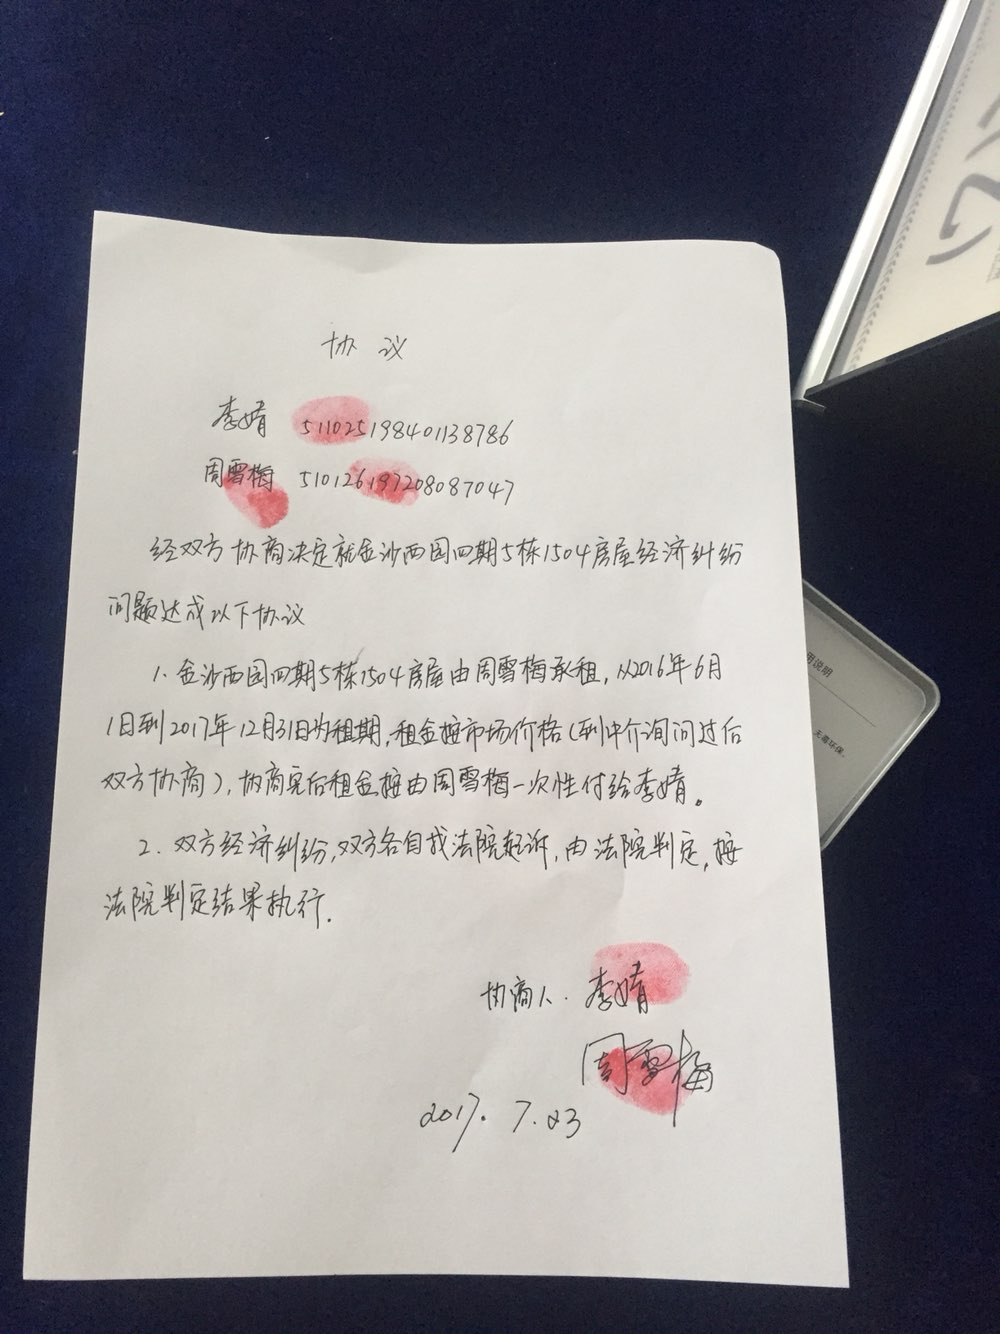 协 议
李婧 511025198401138786
周雪梅 510126197208087047
经双方协商决定就金沙西园四期5栋1504房屋经济纠纷
问题达成以下协议
1. 金沙西园四期5栋1504房屋由周雪梅承租,从2016年6月
1日到2017年12月31日为租期,租金按市场价格(到中介询问过后
双方协商),协商完后租金按由周雪梅一次性付给李婧。
2. 双方经济纠纷,双方各自找法院起诉,由法院判定,按
法院判定结果执行.
协商人. 李婧
周雪梅
2017. 7.23
用说明
无毒环保.